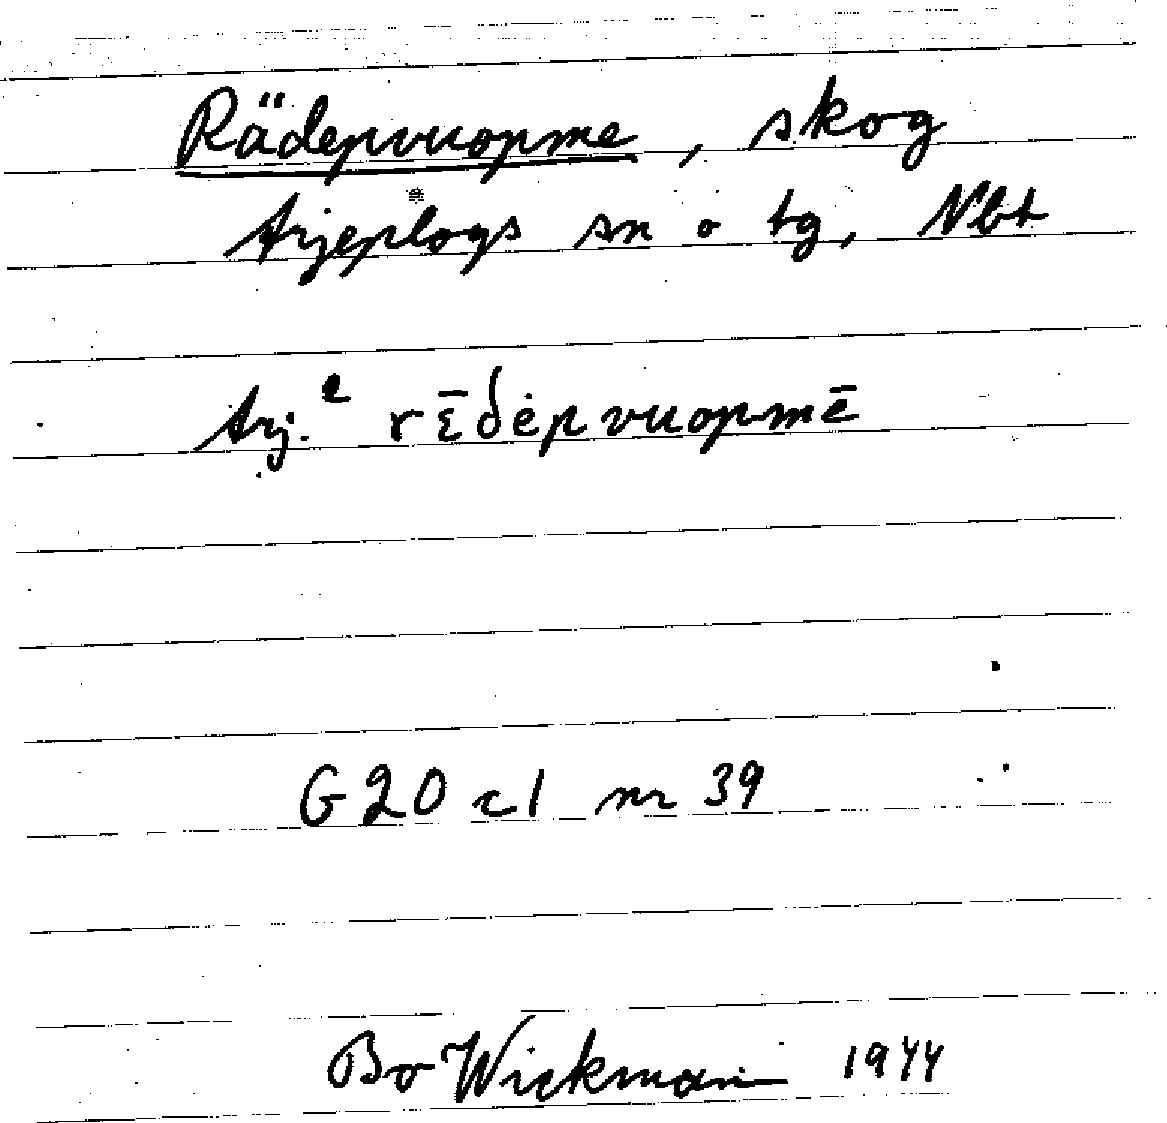 Rädepvuopme, skog
Arjeplogs sn o tg, Nbt
Arj. ͤ rε̄δėpvuopmē
G20 c1 nr 39
Bo Wickman 1944